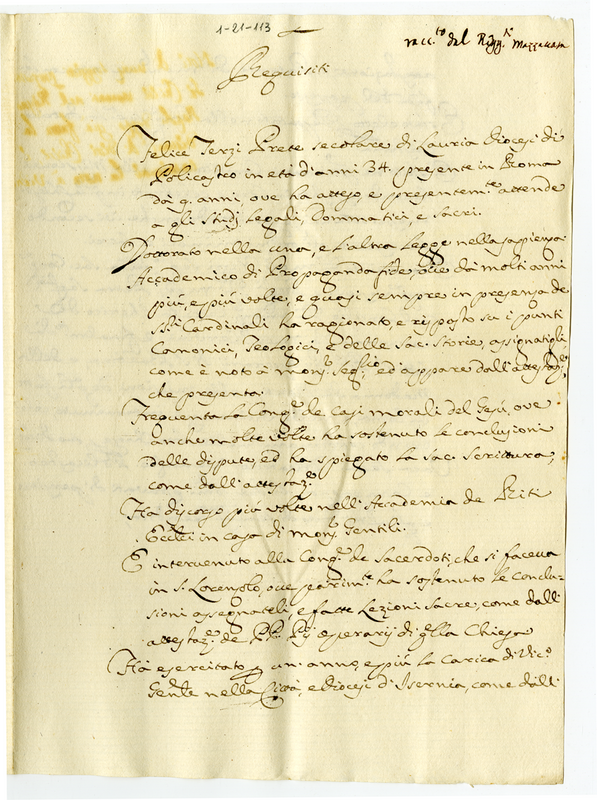 1-21-113
racc.to dal Regg.
Requisiti
Felice Terzi Prete secolare di Lauria Diocesi di
Policastro in età d'anni 34. presente in Roma
da 9. anni, ove ha atteso, e presentem.te attende
a gli Studj Legali, Dommatici, e Sacri.
Dottorato nella una, e l'altra Legge nella sapienza
Accademico di Propaganda fide, ove da molti anni
più, e più volte, e quasi sempre in presenza de
SS.ri Cardinali ha ragionato, e risposto su i punti
Canonici, Teologici, e delle Sac. Storie, assignatigli,
come è noto à mons.r Seg.rio ed appare dall'attestaz.e
che presenta.
Frequenta la Cong.e de casi morali del Gesù, ove
anche molte volte ha sostenuto le conclusioni
delle dispute, ed ha spiegato la sac. scrittura,
come dall'attestaz.e
Ha discorso più volte nell'Accademia de Riti
Eccl.ci in casa di mons.r Gentili.
È intervenuto alla Cong.e de Sacerdoti, che si faceva
in S. Lorenzolo, ove parim.te ha sostenuto le conclu-
sioni assegnateli, e fatte Lezioni Sacre, come dall'
attestaz.e de PP. Pij operarij di q.lla Chiesa
Ha esercitato p un'anno, e più la carica di Vic.o
Gen.le nella Città, e Diocesi d'Isernia, come dall'